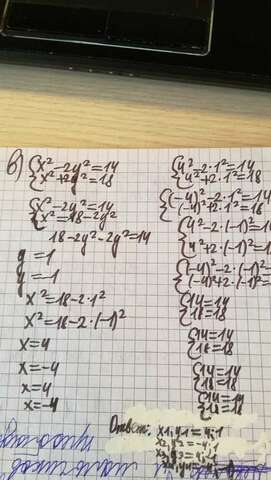 в) { x² - 2y² = 14
{ x² + 2y² = 18
{ x² - 2y² = 14
{ x² = 18 - 2y²
18 - 2y² - 2y² = 14
y = 1
y = -1
x² = 18 - 2·1²
x² = 18 - 2·(-1)²
x = 4
x = -4
x = 4
x = -4
{ 4² - 2·1² = 14
{ 4² + 2·1² = 18
{ (-4)² - 2·1² = 14
{ (-4)² + 2·1² = 18
{ 4² - 2·(-1)² = 14
{ 4² + 2·(-1)² = 18
{ (-4)² - 2·(-1)²
{ (-4)² + 2·(-1)²
{ 14 = 14
{ 18 = 18
{ 14 = 14
{ 18 = 18
{ 14 = 14
{ 18 = 18
{ 14 = 14
{ 18 = 18
Ответ: x1; y1 = 4; 1
x2; y2 = -4; 1